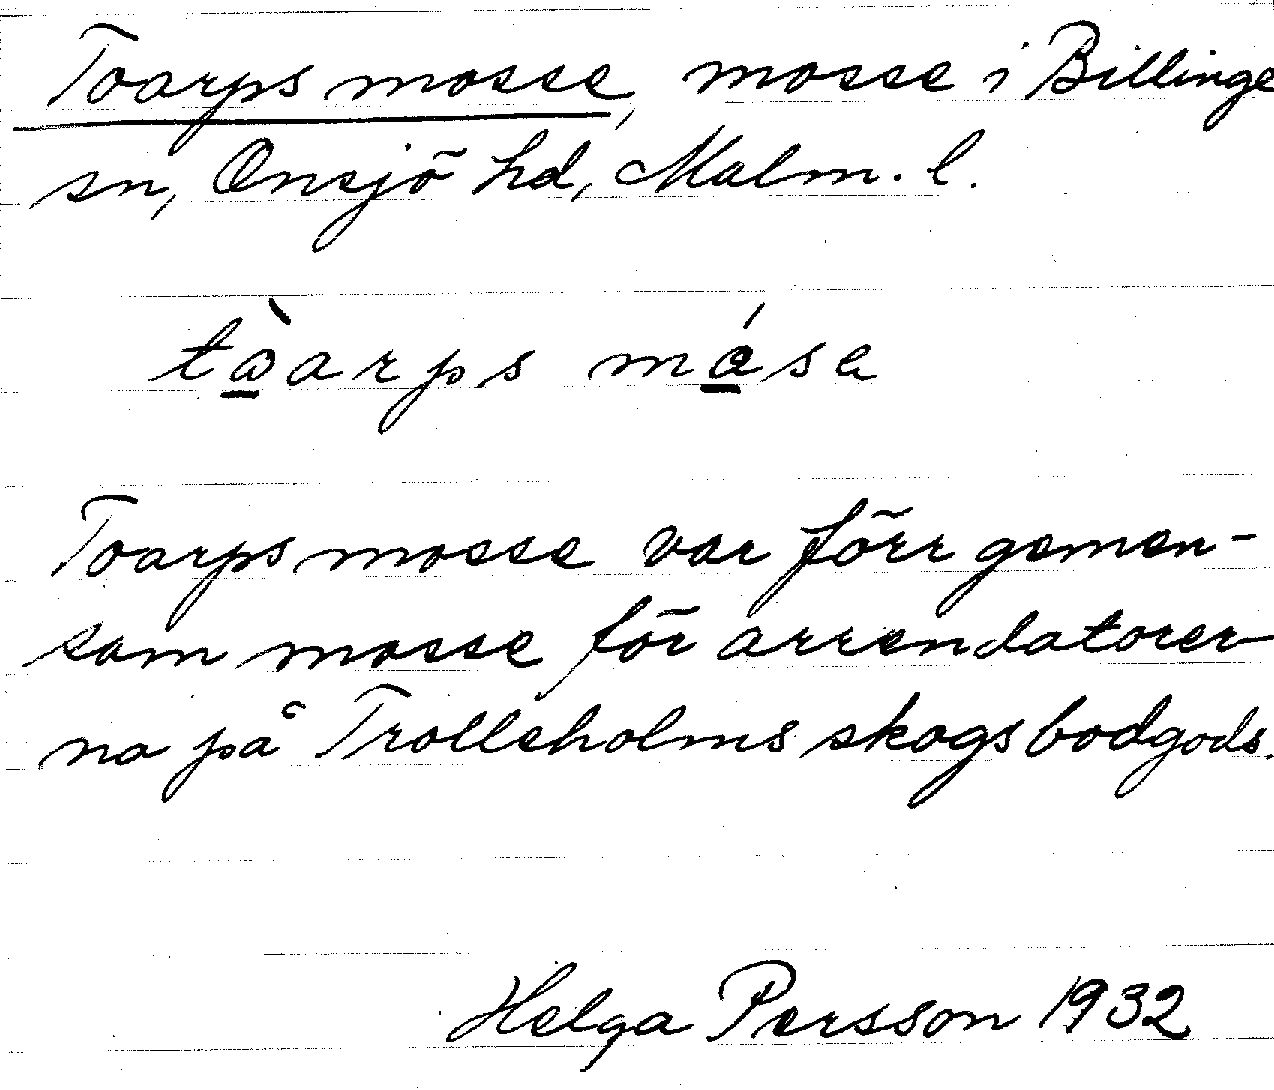 Toarps mosse, mosse i Billinge
sn, Onsjö hd, Malm. l.
tòarps måsa
Toarps mosse var förr gemen-
sam mosse för arrendatorer-
na på Trolleholms skogsbodgods.
Helga Persson 1932